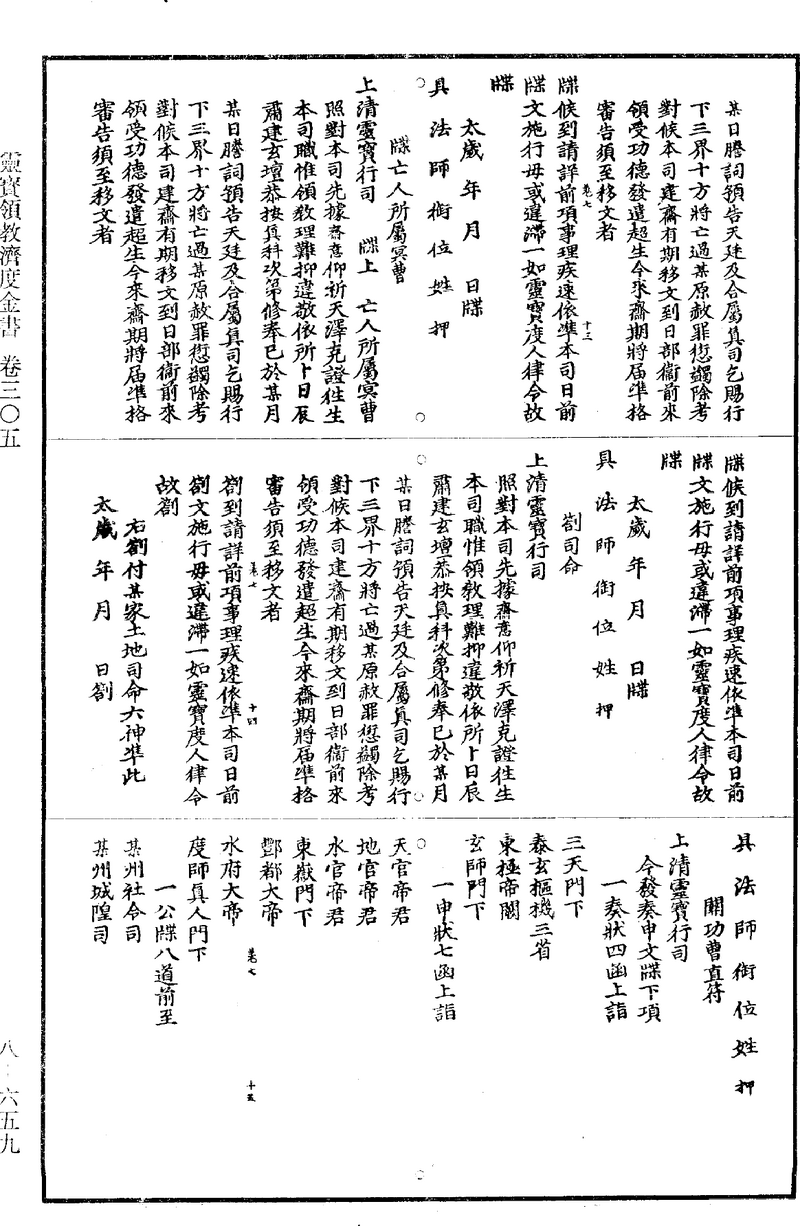 某日謄詞預告天廷及合屬真司乞賜行
下三界十方將亡過某原赦罪愆蠲除考
對候本司建齋有期移文到日部衞前來
領受功德發遣超生今來齋期將届準格
審告須至移文者
卷七 十三
牒候到請詳前項事理疾速依準本司日前
牒文施行毋或違滯一如靈寶度人律令故
牒
太歲 年 月 日牒
具 法 師 銜 位 姓 押
牒亡人所屬冥曹
上清靈寶行司 牒上 亡人所屬冥曹
照對本司先據齋意仰祈天澤克證徃生
本司職惟領教理難抑違敬依所卜日辰
肅建玄壇恭按真科次第修奉已於某月
某日謄詞預告天廷及合屬真司乞賜行
下三界十方將亡過某原赦罪愆蠲除考
對候本司建齋有期移文到日部衞前來
領受功德發遣超生今來齋期將届準格
審告須至移文者
牒候到請詳前項事理疾速依準本司日前
牒文施行毋或違滯一如靈寶度人律令故
牒
太歲 年 月 日牒
具 法 師 銜 位 姓 押
劄司命
上清靈寶行司
照對本司先據齋意仰祈天澤克證徃生
本司職惟領教理難抑違敬依所卜日辰
肅建玄壇恭按真科次第修奉已於某月
某日謄詞預告天廷及合屬真司乞賜行
下三界十方將亡過某原赦罪愆蠲除考
對候本司建齋有期移文到日部衞前來
領受功德發遣超生今來齋期將届準格
審告須至移文者
卷七 十四
劄到請詳前項事理疾速依準本司日前
劄文施行毋或違滯一如靈寶度人律令
故劄
右劄付某家土地司命六神準此
太歲 年 月 日劄
具 法 師 銜 位 姓 押
關功曹直符
上清靈寶行司
今發奏申文牒下項
一奏狀四函上詣
三天門下
泰玄樞機三省
東極帝闕
玄師門下
一申狀七函上詣
天官帝君
地官帝君
水官帝君
東嶽門下
酆都大帝
卷七 十五
水府大帝
度師真人門下
一公牒八道前至
某州社令司
某州城隍司
靈寶領教濟度金書 卷三〇五
八·六五九